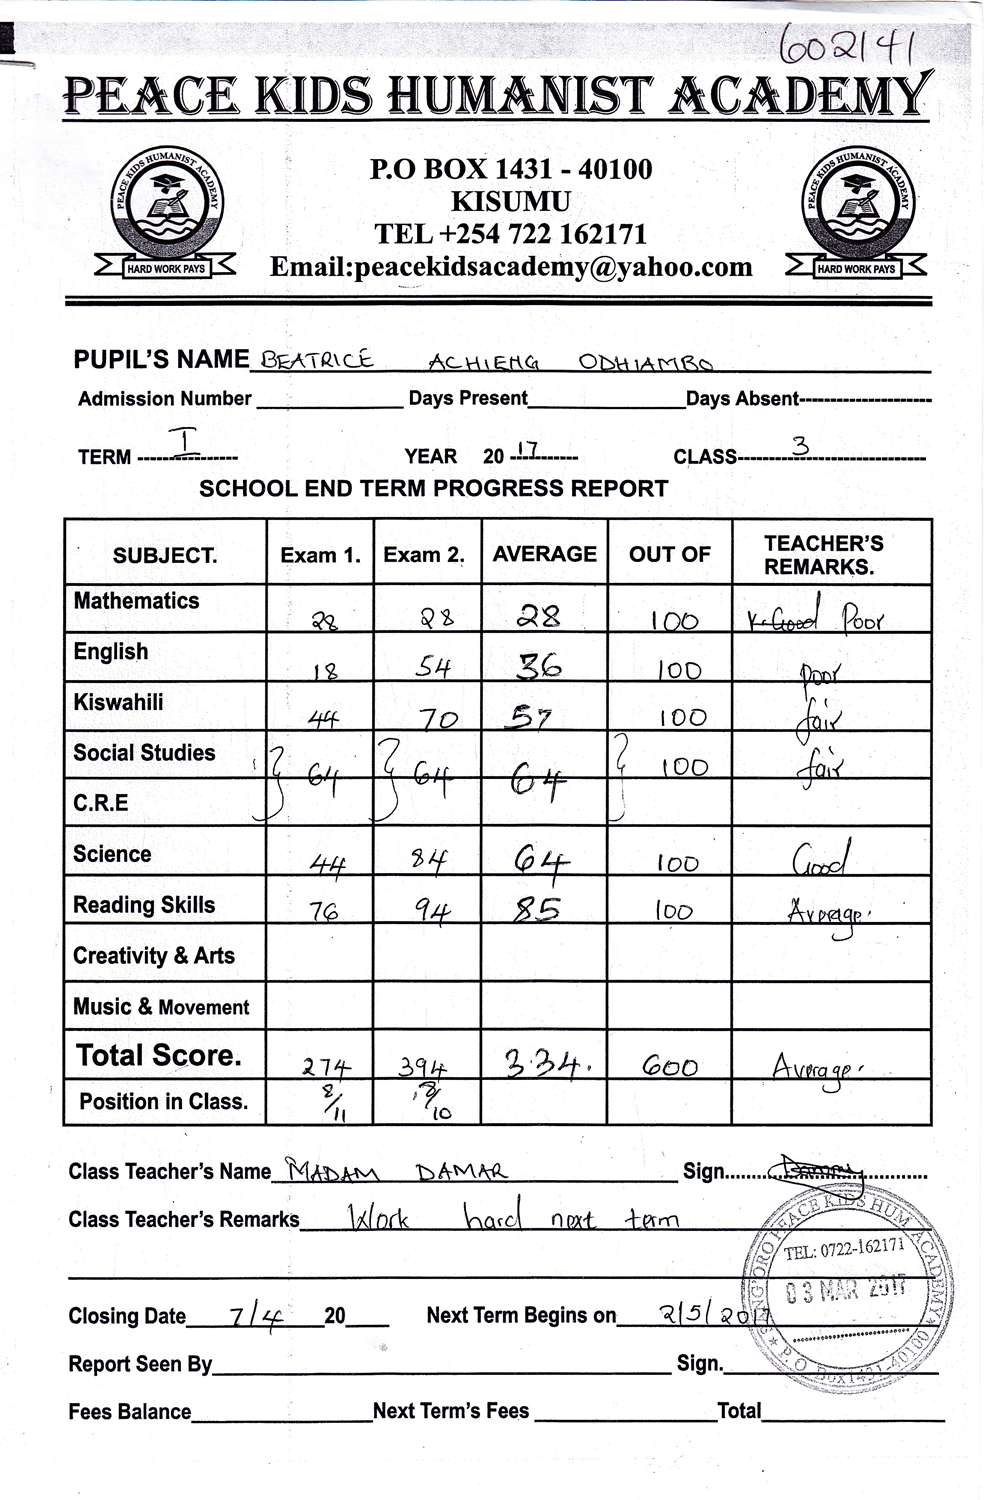 602141
PEACE KIDS HUMANIST ACADEMY
P.O BOX 1431 - 40100
KISUMU
TEL +254 722 162171
Email:peacekidsacademy@yahoo.com
PEACE KIDS HUMANIST ACADEMY
HARD WORK PAYS
PEACE KIDS HUMANIST ACADEMY
HARD WORK PAYS
PUPIL'S NAME BEATRICE ACHIENG ODHIAMBO
Admission Number Days Present Days Absent
TERM I YEAR 2017 CLASS 3
SCHOOL END TERM PROGRESS REPORT
SUBJECT. Exam 1. Exam 2. AVERAGE OUT OF TEACHER'S REMARKS.
Mathematics 28 28 28 100 V.Good Poor
English 18 54 36 100 poor
Kiswahili 44 70 57 100 fair
Social Studies 64 64 64 100 fair
C.R.E
Science 44 84 64 100 Good
Reading Skills 76 94 85 100 Average.
Creativity & Arts
Music & Movement
Total Score. 274 394 334. 600 Average.
Position in Class. 8/11 8/10
Class Teacher's Name MADAM DAMAR Sign
Class Teacher's Remarks Work hard next term
TEL: 0722-162171
03 MAR 2017
PEACE KIDS HUM ACADEMY
P.O Box 1431-40100
Closing Date 7/4 20 Next Term Begins on 2/5/2017
Report Seen By Sign.
Fees Balance Next Term's Fees Total